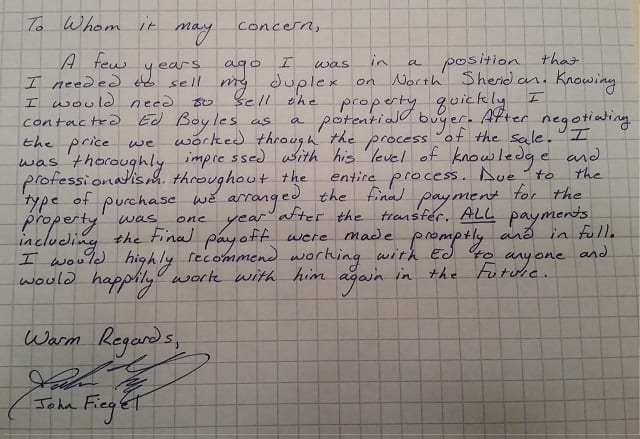 To Whom it may concern,
A few years ago I was in a position that
I needed to sell my duplex on North Sheridan. Knowing
I would need to sell the property quickly I
contacted Ed Boyles as a potential buyer. After negotiating
the price we worked through the process of the sale. I
was thoroughly impressed with his level of knowledge and
professionalism throughout the entire process. Due to the
type of purchase we arranged the final payment for the
property was one year after the transfer. ALL payments
including the final payoff were made promptly and in full.
I would highly recommend working with Ed to anyone and
would happily work with him again in the Future.
Warm Regards,
John Fiegel